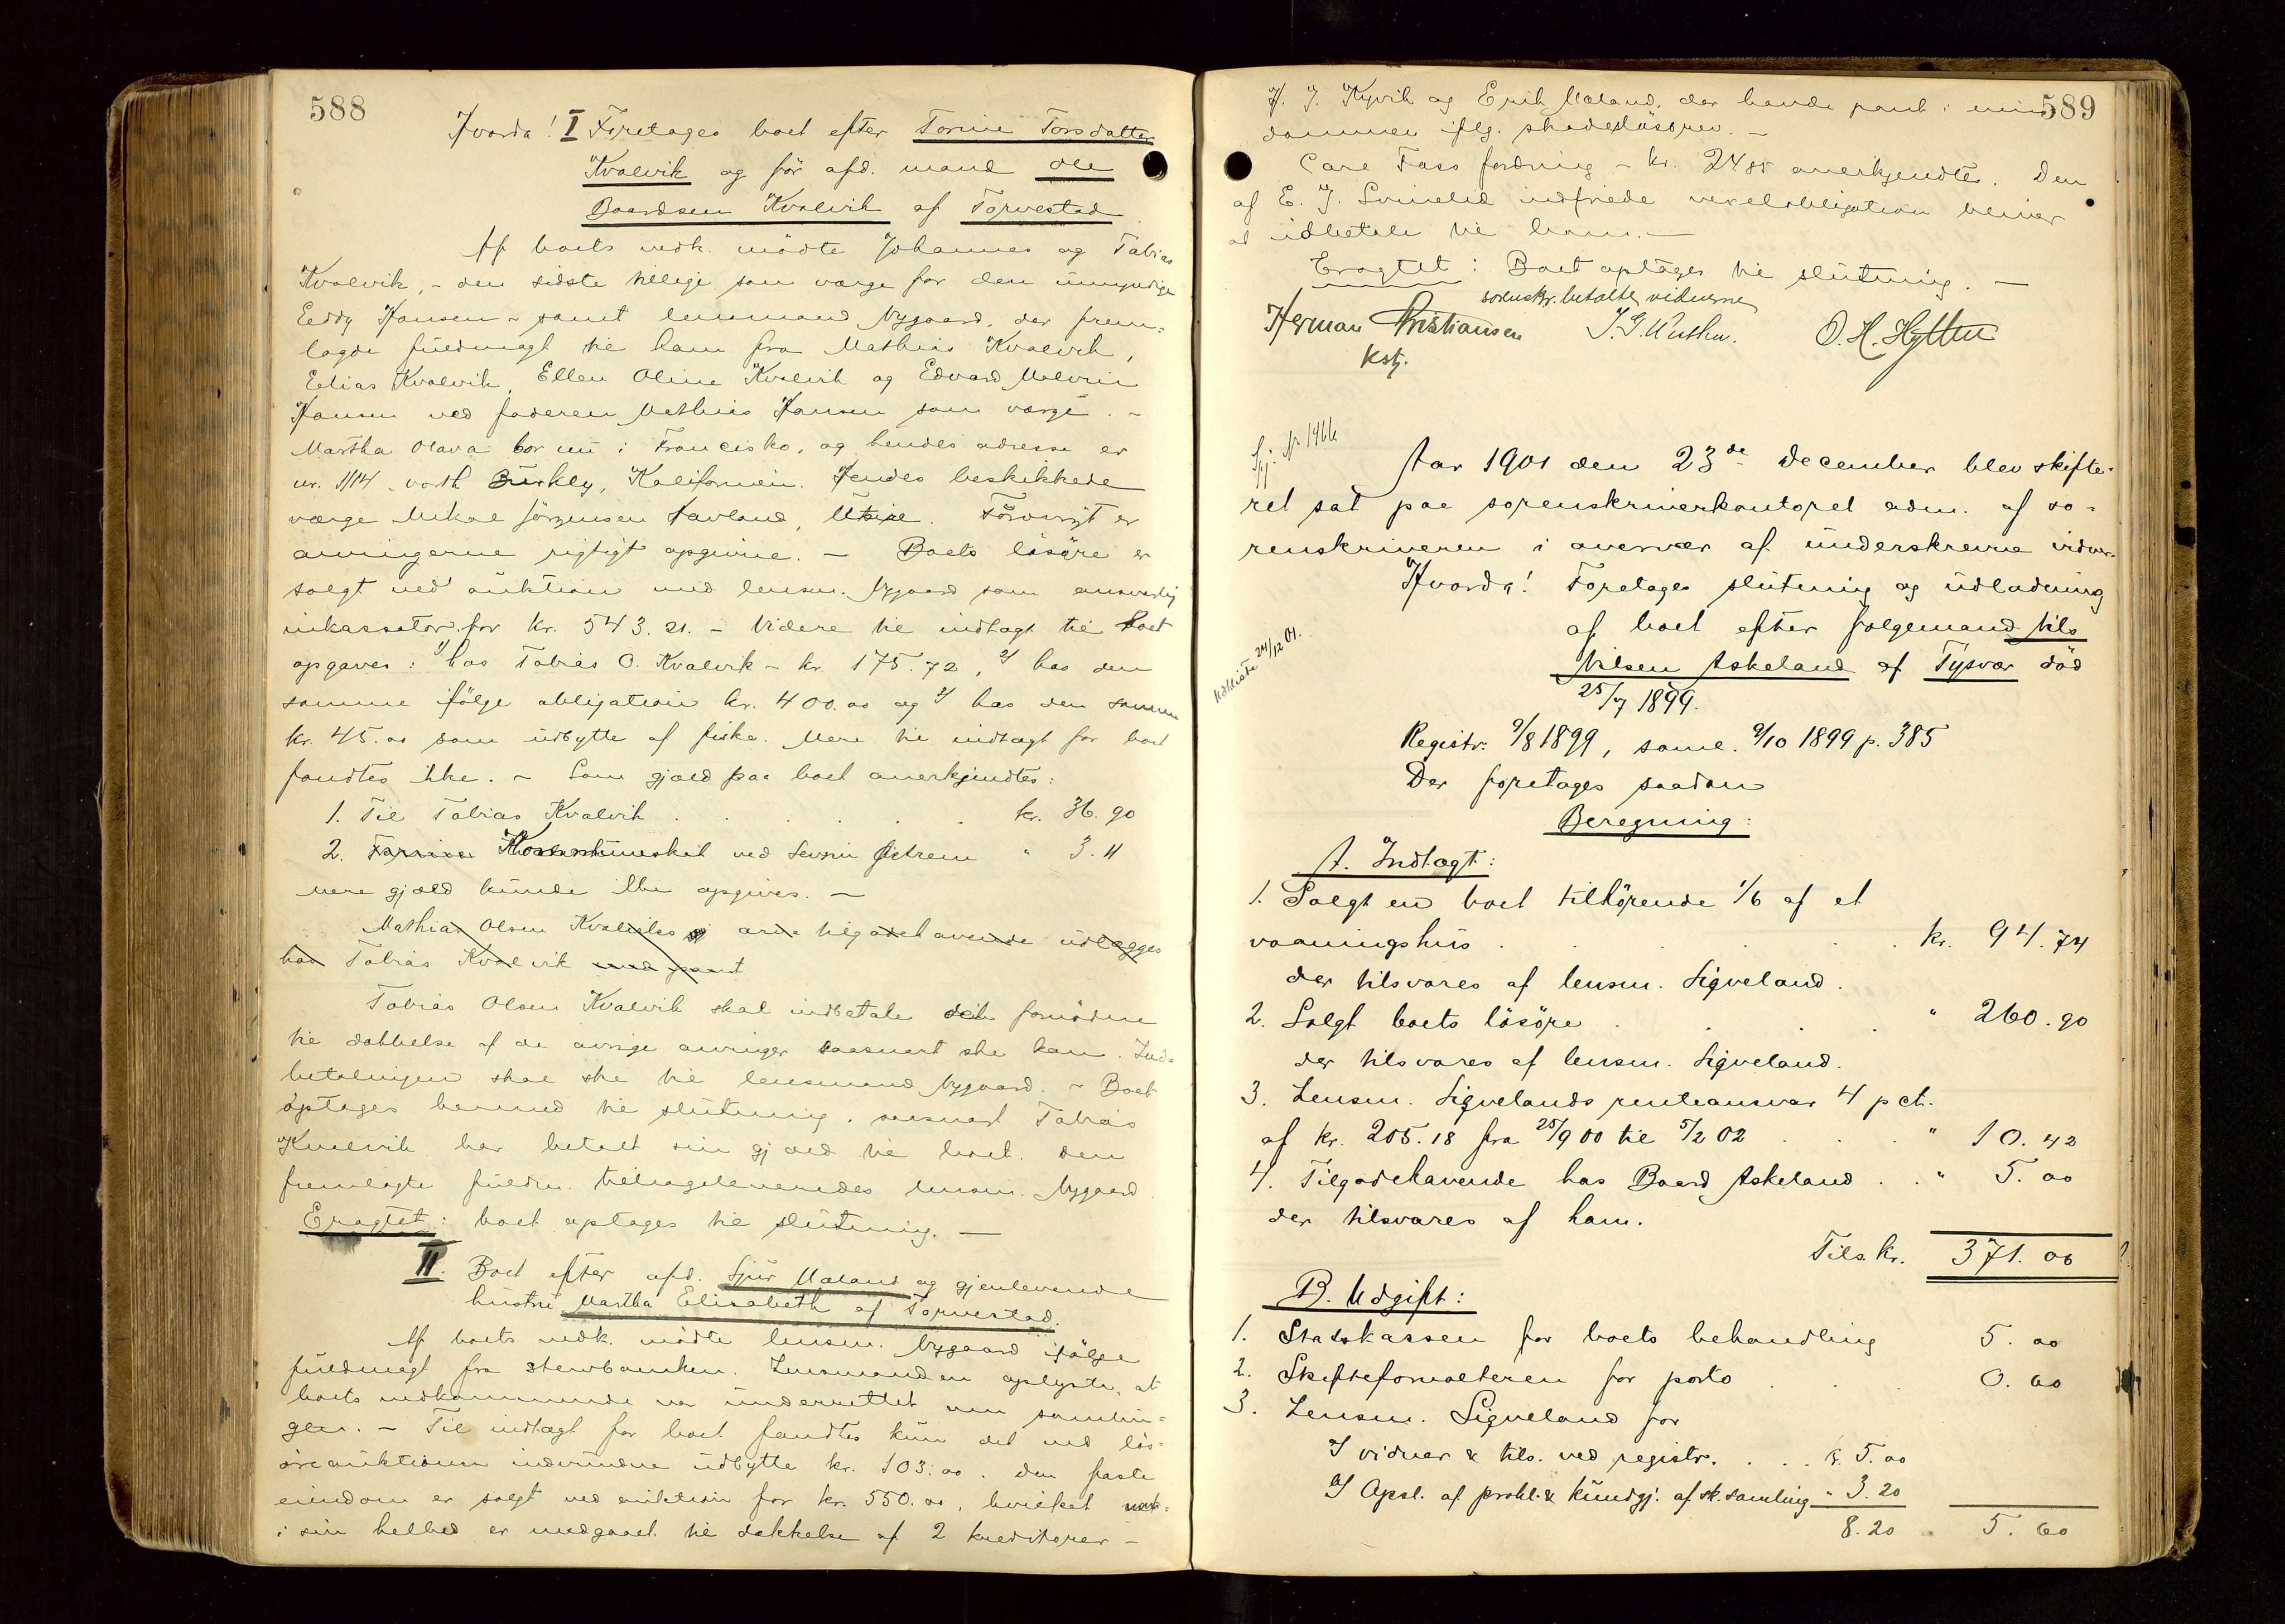 588
Hvorda! I Foretages boet efter Torine Torsdatter
Kvalevik og før afd. mand Ole
Baardsen Kvalevik af Torvestad
Af boets vedk. mödte Johannes og Tobias
Kvalevik, - den sidste tillige som værge for den umyndige
Eddy Hansen - samt lensmand Nygaard, der frem-
lagde fuldmagt til ham fra Mathias Kvalevik,
Elias Kvalevik, Ellen Oline Kvalevik og Edvard Melvin
Hansen ved faderen Mathias Hansen som værge. -
Martha Olava bor nu i Francisko, og hendes adresse er
nr. 1114 vorth Bürkley, Kalifornien. Hendes beskikkede
værge Mikal Jörgensen Havland, Utsire. Forövrigt er
arvingerne rigtigt opgivne. - Boets lösöre er
solgt ved auktion med lensm. Nygaard som ansvarlig
inkassator for kr. 543.21. - Videre til indtægt til boet
opgaves: 1/ hos Tobias O. Kvalevik - kr. 175.72, 2/ hos den
samme ifölge obligation kr. 400.00 og 3/ hos den samme
kr. 45.00 som udbytte af fiske. Mere til indtægt for boet
fandtes ikke. - Som gjæld paa boet anerkjendtes:
1. Til Tobias Kvalevik . . . . . kr. 36.90
2. Kommuneskat ved Sevrin Østrem " 3.11
mere gjæld kunde ikke opgives. -
Mathias Olsen Kvaleviks arv tilgodehavende udlægges
hos Tobias Kvalevik med pant
Tobias Olsen Kvalevik skal indbetale det fornödne
til dækkelse af de övrige arvinger saasnart ske kan. Ind-
betalingen skal ske til lensmand Nygaard. - Boet
optages hermed til slutning, saasnart Tobias
Kvalevik har betalt sin gjæld til boet. Den
fremlagte fuldm. tilbageleveredes lensm. Nygaard.
Eragtet: boet optages til slutning. -
II. Boet efter afd. Sjur Mæland og gjenlevende
hustru Martha Elisabeth af Torvestad.
Af boets vedk. mödte lensm. Nygaard ifölge
fuldmagt fra stervboenken. Lensmanden oplyste, at
boets vedkommende var underrettet om samlin-
gen. - Til indtægt for boet fandtes kun det ved lös-
öreauktionen indvundne udbytte kr. 103.00. Den faste
eiendom er solgt ved auktion for kr. 550.00, hvilket
i sin helhed er medgaaet til dækkelse af 2 kreditorer -
589
H. J. Kyvik og Erik Mæland, der havde pant i eien-
dommen iflg. skadeslösbrev. -
Carl Fass fordring - kr. 24.85 anerkjendtes. Den
af E. J. Svinelid indfriede vexelobligation bliver
at udbetale til ham. -
Eragtet: Boet optages til slutning. -
sorenskr. betalte vidnerne
Herman Christiansen J. G. Wuthu. O. H. Hytten
kst.
Sj. № 1466
Aar 1901 den 23de december blev skifte-
ret sat paa sorenskriverkontoret adm. af so-
renskriveren i overvær af underskrevne vidner.
Hvorda! Foretages slutning og udlodning
af boet efter fölgemand Nils
Nilsen Askeland af Tysvær död
25/7 1899.
Udskrift 24/12 01.
Registr. 9/8 1899, saml. 9/10 1899 p. 385
Der foretages saadan
Beregning:
A. Indtægt:
1. Solgt en boet tilhörende 1/6 af et
vaaningshus . . . . . kr. 94.74
der tilsvares af lensm. Sigveland.
2. Solgt boets lösöre . . . . " 260.90
der tilsvares af lensm. Sigveland.
3. Lensm. Sigvelands renteansvar 4 pct.
af kr. 205.18 fra 25/9 00 til 5/2 02 . . . " 10.42
4. Tilgodehavende hos Baard Askeland . . " 5.00
der tilsvares af ham.
Tils. kr. 371.06
B. Udgift:
1. Statskassen for boets behandling 5.00
2. Skifteforvalteren for porto . . . 0.60
3. Lensm. Sigveland for
1/ vidner & tils. ved registr. . . . kr. 5.00
2/ Opsl. af prokl. & kundgj. af sk. samling " 3.20
8.20 " 5.60